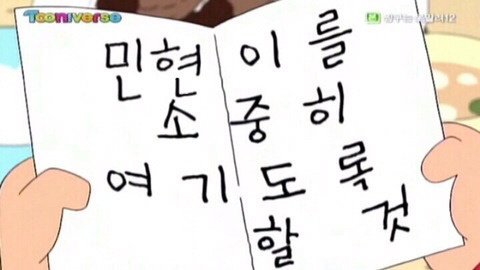 Tooniverse
민현이를
소중히
여기도록
할 것